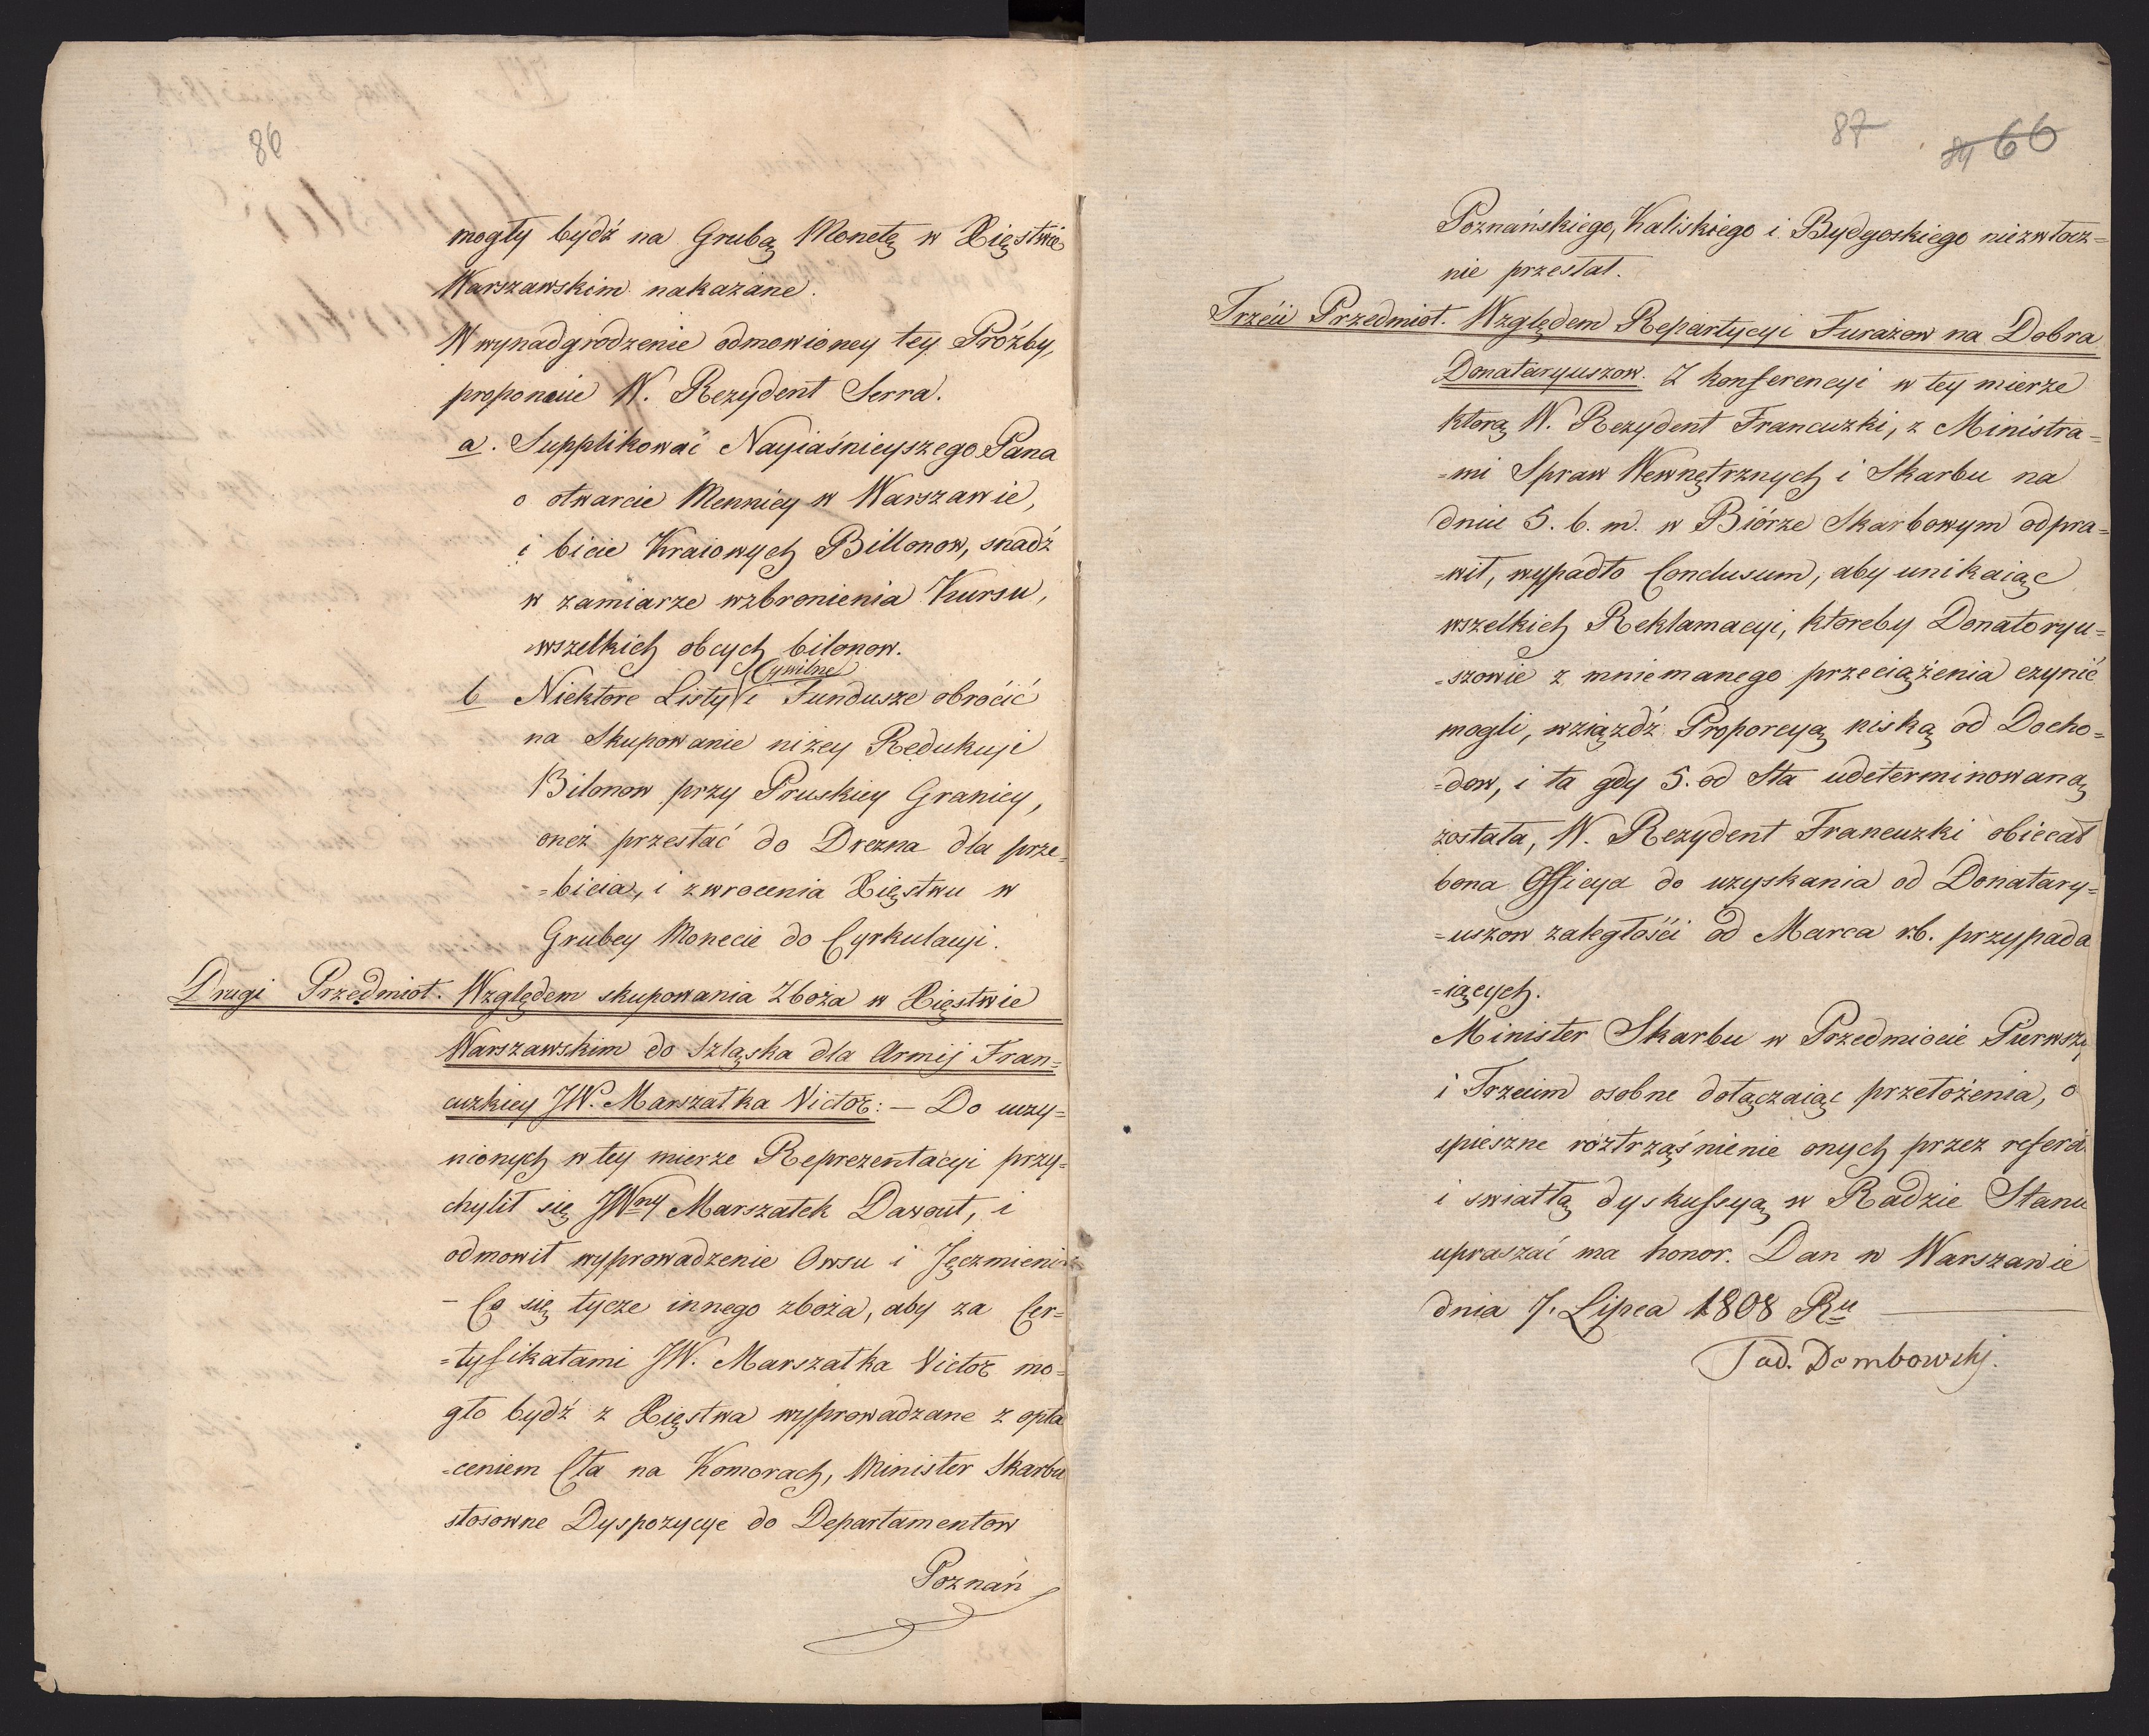 86
mogły bydź na Grubą Monetę w Xięstwie
Warszawskim nakazane.
W wynadgrodzenie odmowioney tey Próźby,
proponuie W. Rezydent Serra.
a. Supplikować Nayiaśnieyszego Pana
o otwarcie Mennicy w Warszawie,
i bicie Kraiowych Billonow, snadź
w zamiarze wzbronienia Kursu,
wszelkich obcych bilonow.
Cywilne
b Niektore Listy i Fundusze obroćić
na Skupowanie niżey Redukuji
Bilonow przy Pruskiey Granicy,
oneż przesłać do Drezna dla prze=
=bicia, i zwrocenia Xięstwu w
Grubey Monecie do Cyrkulacyi.
Drugi Przedmiot. Względem skupowania Zboża w Xięstwie
Warszawskim do Szląska dla Armij Fran=
cuzkiey JW. Marszałka Victor: – Do uczy=
nionych w tey mierze Reprezentacyi przy=
chylił się JWny Marszałek Davout, i
odmowił wyprowadzenie Owsu i Jęczmienia
– Co się tycze innego zboża, aby za Cer=
=tyfikatami JW. Marszałka Victor mo=
gło bydź z Xięstwa wyprowadzane z opła
=ceniem Cła na Komorach, Minister Skarbu
stosowne Dyspozycye do Departamentow
Poznań
87 84 66
Poznańskiego, Kaliskiego i Bydgoskiego niezwłocz=
nie przesłał.
Trzeći Przedmiot. Względem Repartycyi Furażow na Dobra
Donataryuszow. Z konferencyi w tey mierze
ktorą W. Rezydent Francuzki, z Ministra=
=mi Spraw Wewnętrznych i Skarbu na
dniu 5. b. m. w Biórze Skarbowym odpra=
=wił, wypadło Conclusum, aby unikaiąc
wszelkich Reklamacyi, ktoreby Donatoryu=
=szowie z mniemanego przeciążenia czynić
mogli, wziązdź Proporcyą niską od Docho=
=dow, i ta gdy 5. od Sta udeterminowaną
została, W. Rezydent Francuzki obiecał
bona Officya do uzyskania od Donatary=
=uszow zaległośći od Marca rb. przypada
=iących.
Minister Skarbu w Przedmiocie Pierwszy
i Trzecim osobne dołączaiąc przełożenia, o
spieszne roztrząśnienie onych przez referd.
i swiatłą dyskussyą w Radzie Stanu
upraszać ma honor. Dan w Warszawie
dnia 7. Lipca 1808 Ru
Tad. Dembowskj.